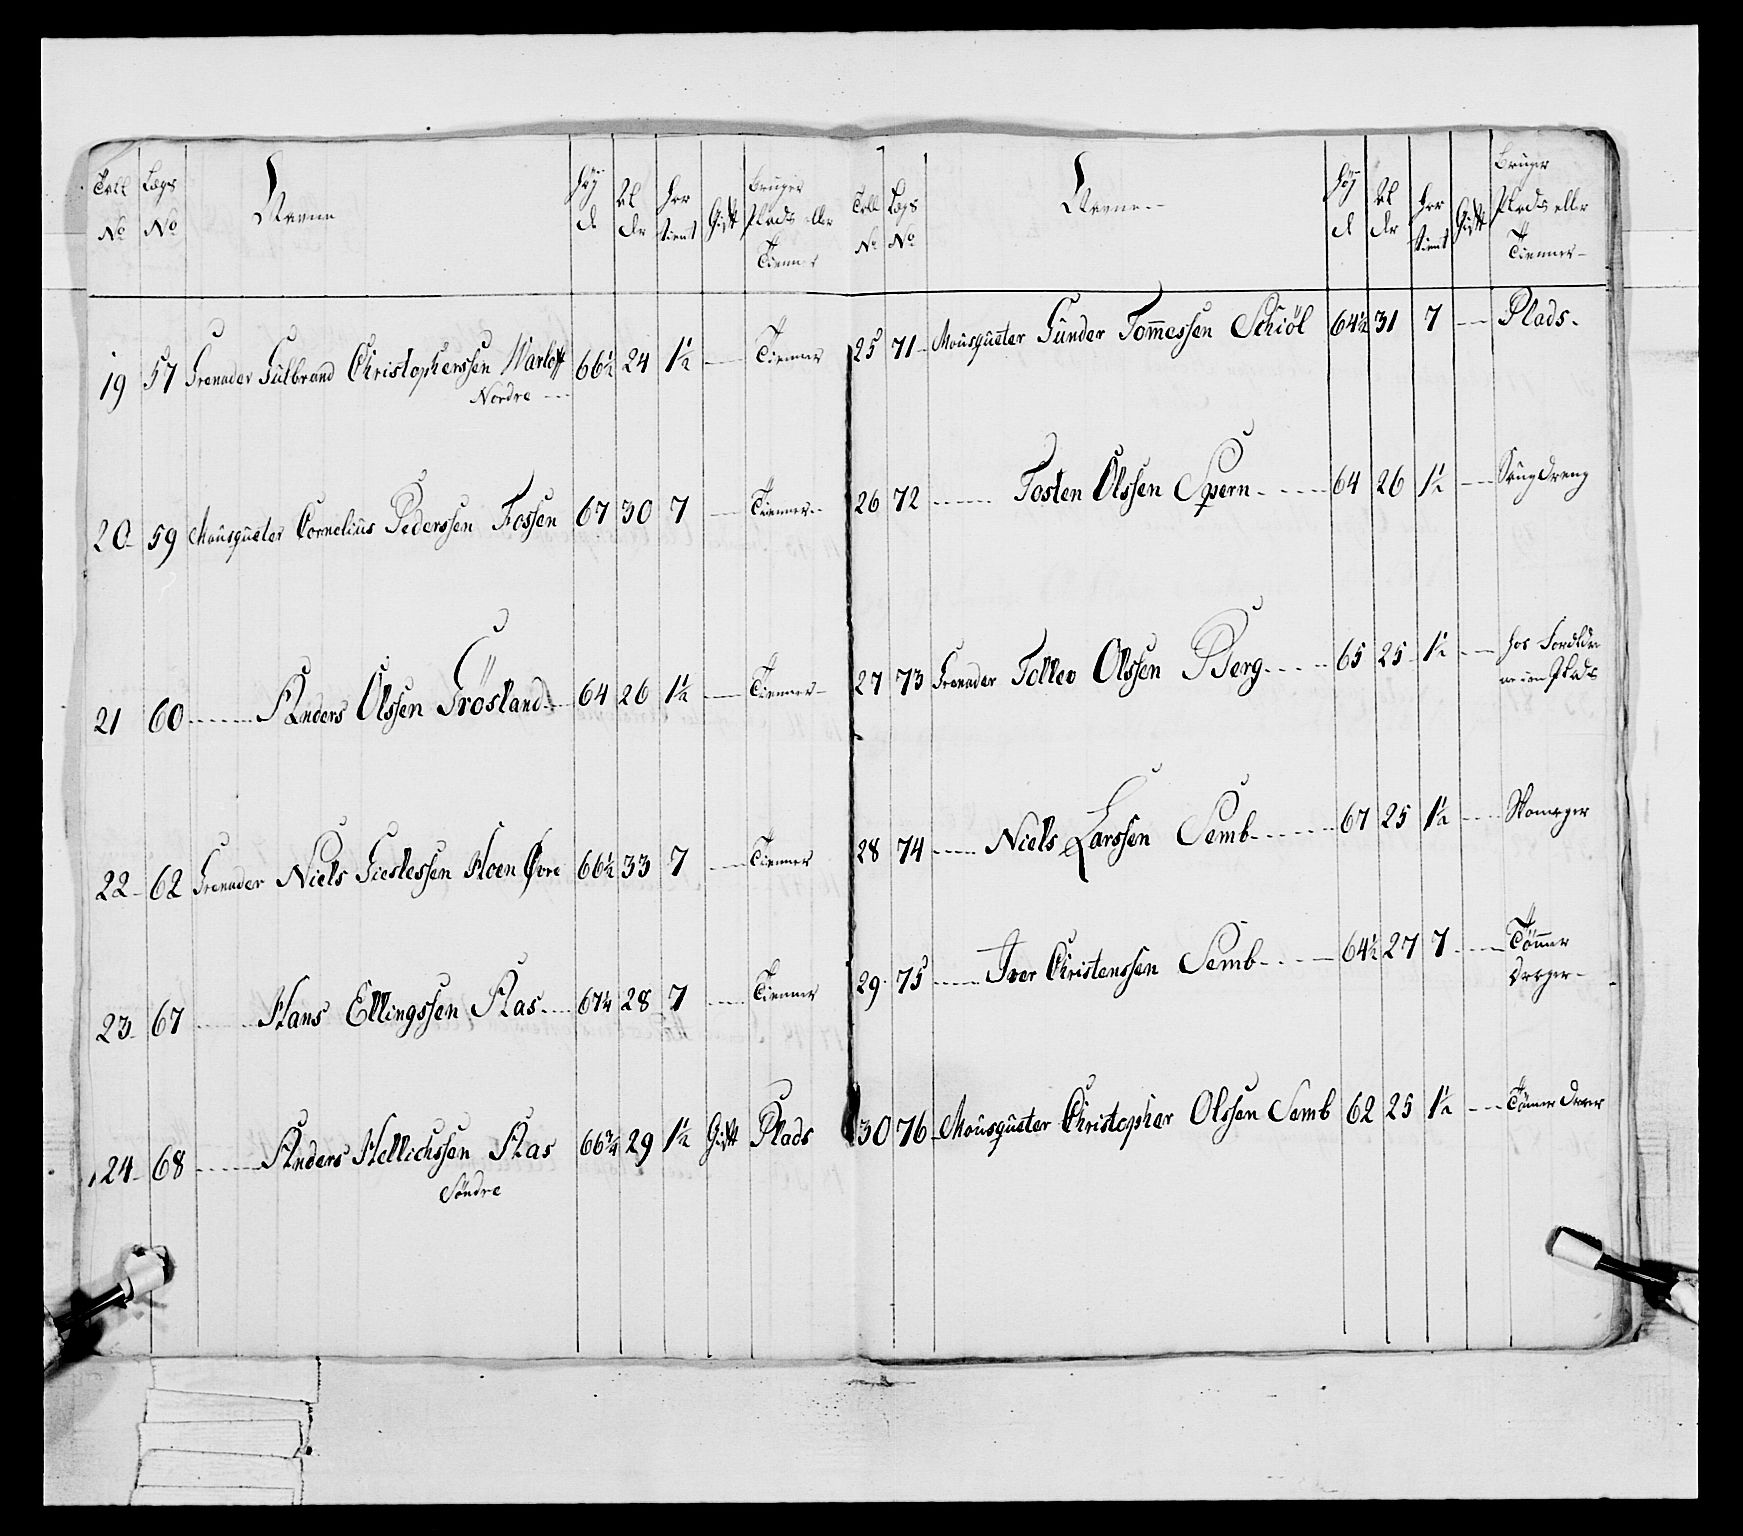 Tall No Lægs No Navne Høyde Alder Har tient Gift Bruger Plads eller Tienner
19 57 Grenader Gulbrand Christopherssen Warloff 66½ 24 1½ --- Tienner
Nordre ---
20 59 Mousqueter Cornelius Pederssen Fossen 67 30 7 --- Tienner
21 60 ------ Anders Olssen Frösland 64 26 1½ --- Tienner
22 62 Grenader Niels Gieslessen Hoen Øvre 66½ 33 7 --- Tienner
23 67 ------ Hans Ellingssen Aas 67¼ 28 7 --- Tienner
24 68 ------ Anders Hellichssen Aas 66¾ 29 1½ Gift Plads
Söndre
Tall No Lægs No Navne Høyde Alder Har tient Gift Bruger Plads eller Tienner
25 71 Mousqueter Gunder Tom̄essen Schiöl 64½ 31 7 --- Plads
26 72 ------ Tosten Olssen Spern 64 26 1½ --- Saugdreng
27 73 Grenader Tollev Olssen Berg 65 25 1½ --- hos Forældre
Plads
28 74 ------ Niels Larssen Semb 67 25 1½ --- Skomager
29 75 ------ Iver Christenssen Semb 64½ 27 7 --- Töm̄er
Drager
30 76 Mousqueter Christopher Olssen Semb 62 25 1½ ---